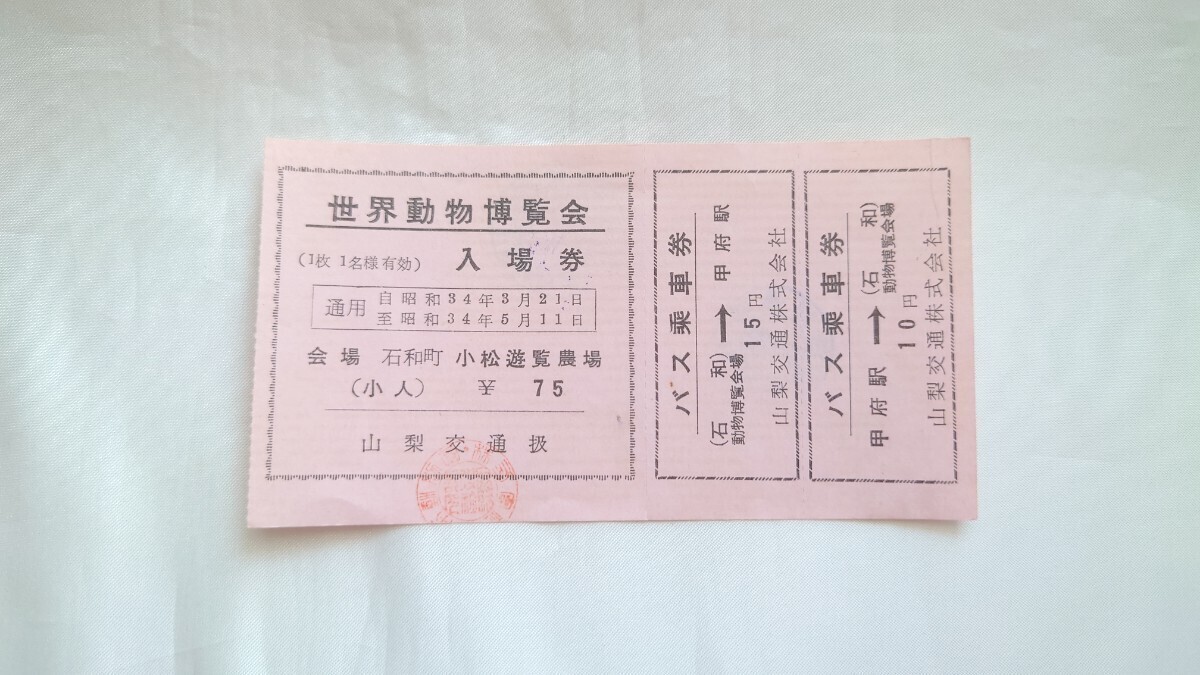 世界動物博覧会
(1枚 1名様有効) 入場券
通用 自昭和34年3月21日
至昭和34年5月11日
会場 石和町 小松遊覧農場
(小人) ¥ 75
山梨交通扱
バス乗車券
(石和)動物博覧会場 → 甲府駅
15円
山梨交通株式会社
バス乗車券
甲府駅 → (石和)動物博覧会場
10円
山梨交通株式会社